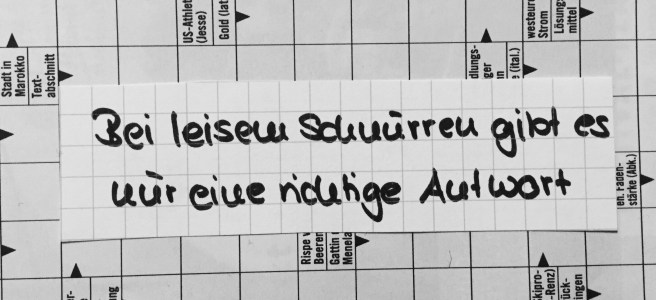 US-Athlet
(Jesse)
Gold (lat
westeur
Strom
Lösung
mittel
Stadt in
Marokko
Text-
abschnitt
dlungs-
ger
in
e (ital.)
Bei leisem Schnurren gibt es
nur eine richtige Antwort
en. Faden-
stärke (Abk.)
Rispe v
Beeren
Gattin
Menela
kipro-
-Renz)
ück-
ingen
er-
ng